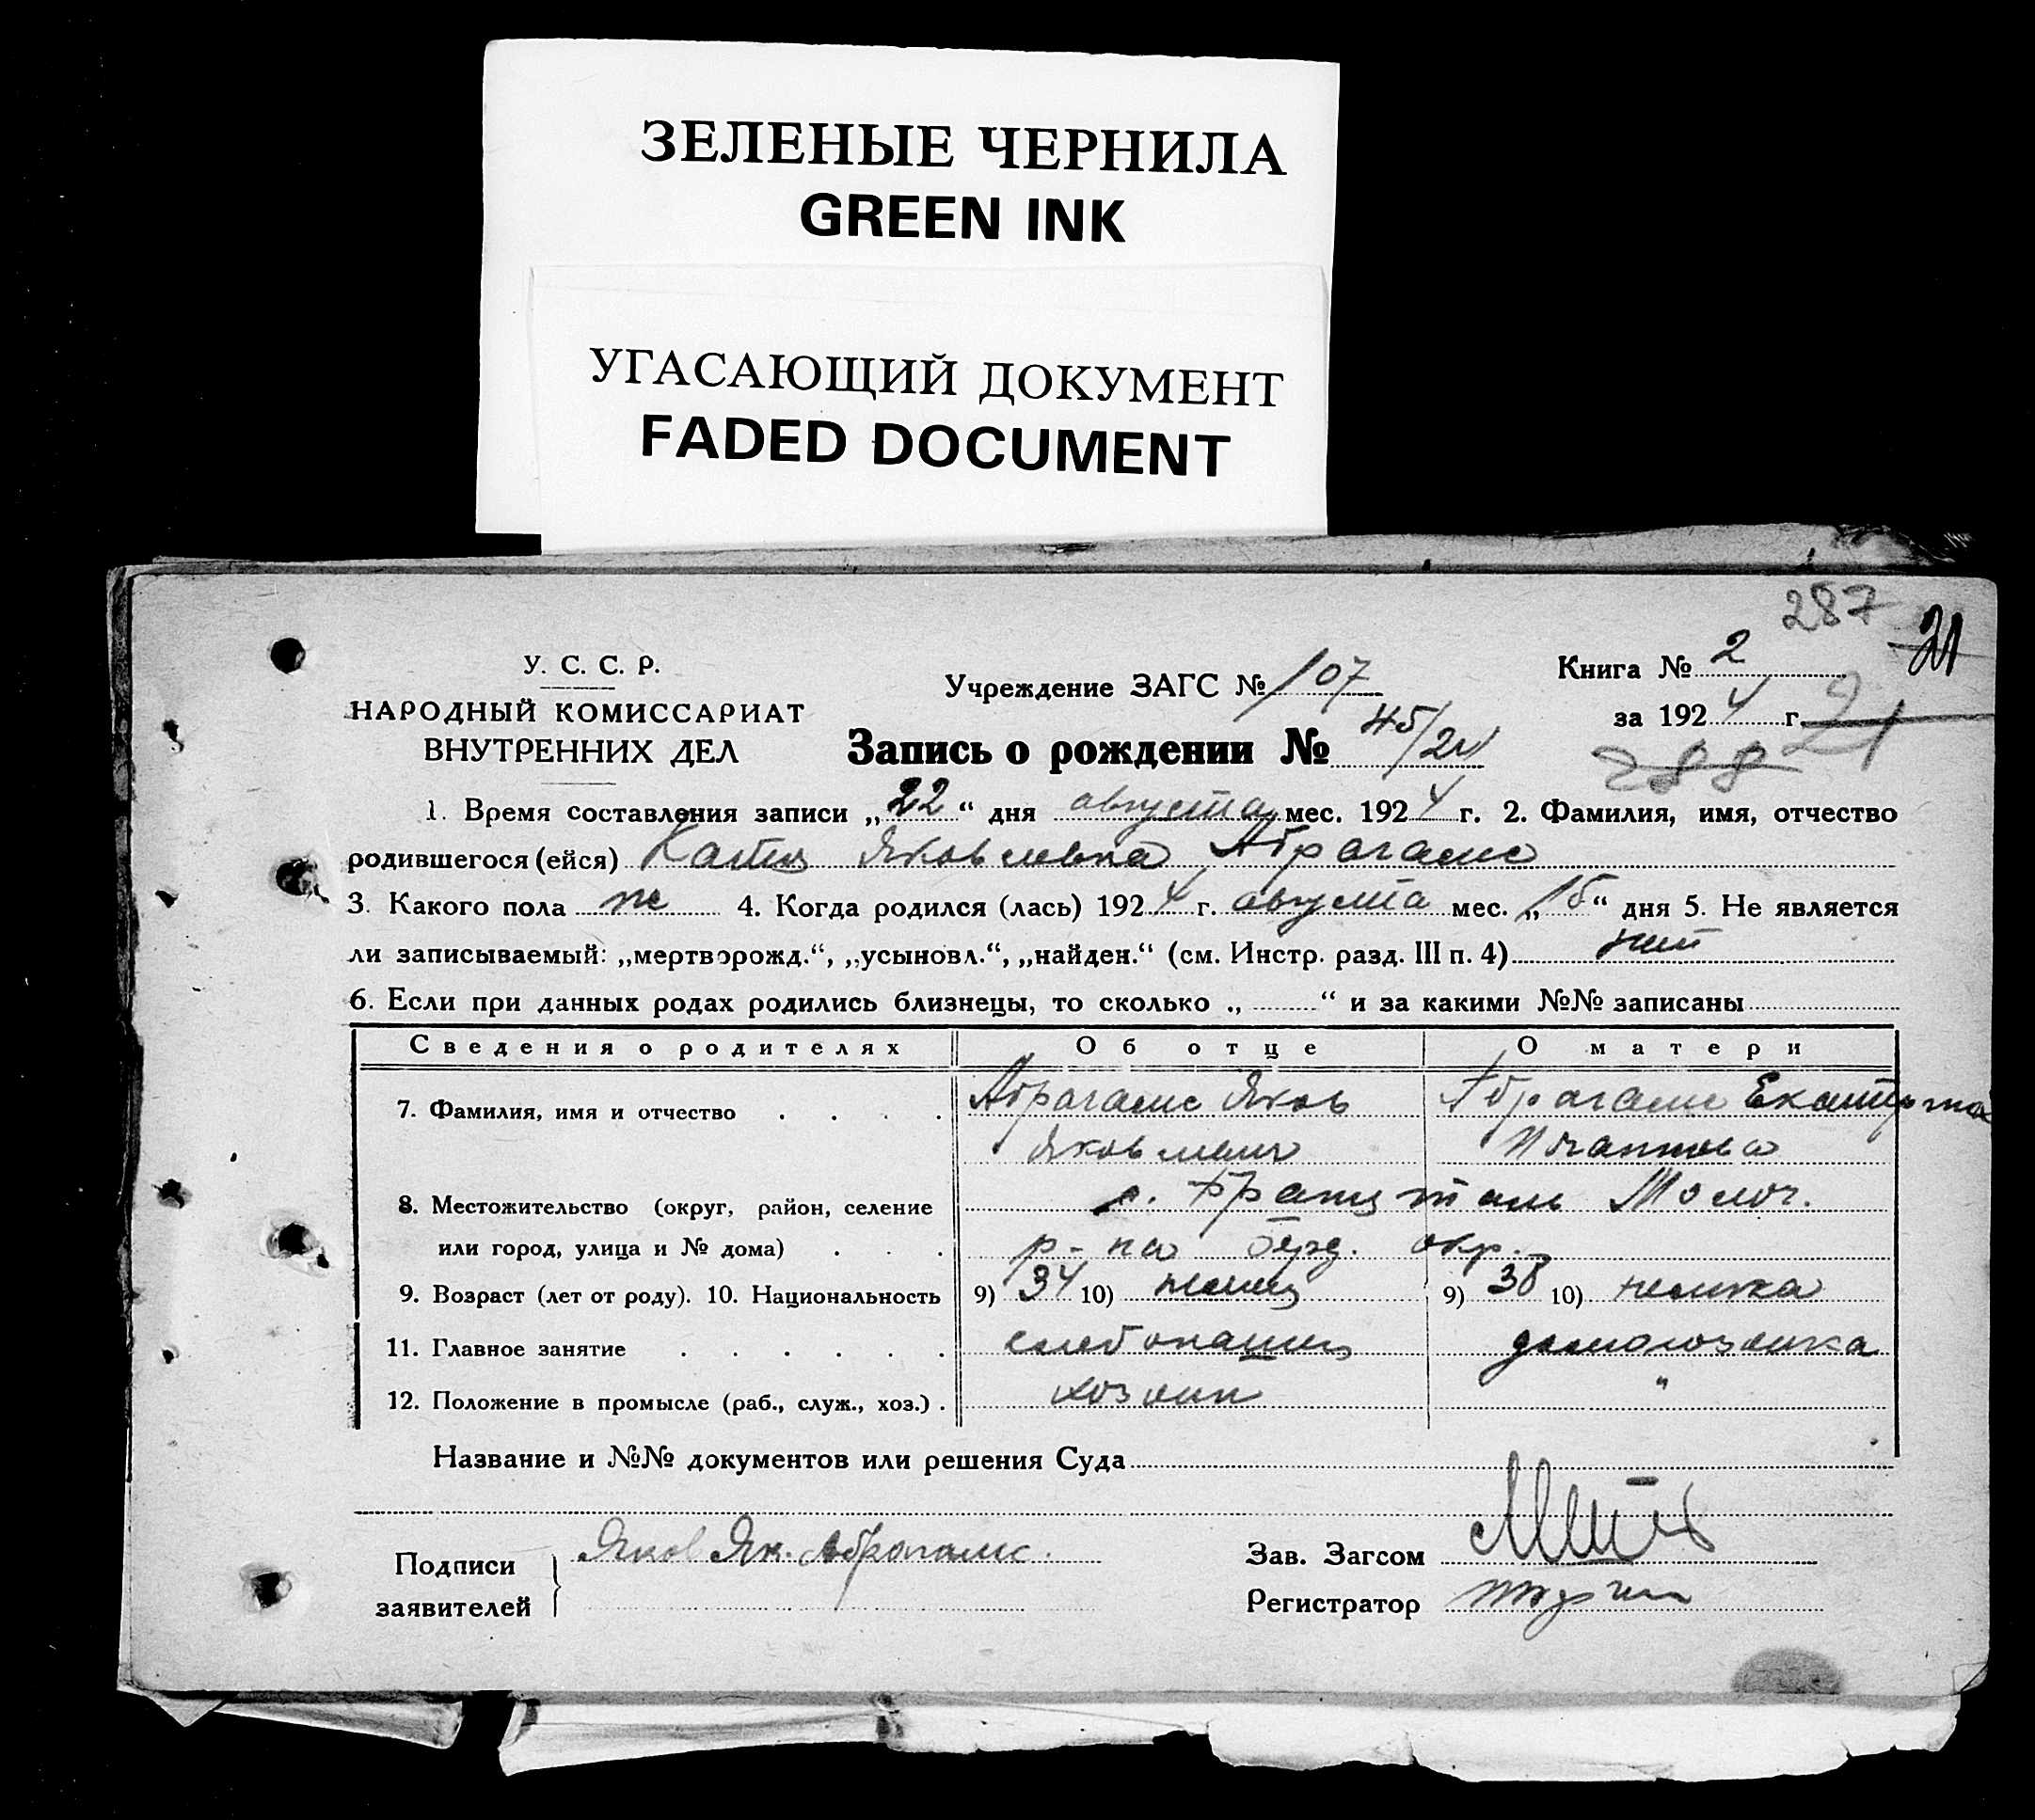 ЗЕЛЕНЫЕ ЧЕРНИЛА
GREEN INK
УГАСАЮЩИЙ ДОКУМЕНТ
FADED DOCUMENT
287
21
У. С. С. Р.
НАРОДНЫЙ КОМИССАРИАТ
ВНУТРЕННИХ ДЕЛ
Учреждение ЗАГС № 107
Запись о рождении № 45/21
Книга № 2
за 1924 г. 21
288
1. Время составления записи „22“ дня августа мес. 1924 г. 2. Фамилия, имя, отчество
родившегося (ейся) Катя Яковлевна Абрагамс
3. Какого пола ж 4. Когда родился (лась) 1924 г. августа мес. „15“ дня 5. Не является
ли записываемый: „мертворожд.“, „усыновл.“, „найден.“ (см. Инстр. разд. III п. 4) нет
6. Если при данных родах родились близнецы, то сколько „ “ и за какими №№ записаны
Сведения о родителях Об отце О матери
7. Фамилия, имя и отчество . . . . Абрагамс Яков Абрагамс Екатерина
Яковлевич
8. Местожительство (округ, район, селение с. Молоч.
или город, улица и № дома) . . . р-на окр.
9. Возраст (лет от роду). 10. Национальность 9) 34 10) немец 9) 38 10) немка
11. Главное занятие . . . . . . хлебопашец домохозяйка
12. Положение в промысле (раб., служ., хоз.) . хозяин "
Название и №№ документов или решения Суда
Подписи
заявителей
Яков Як. Абрагамс.
Зав. Загсом
Регистратор